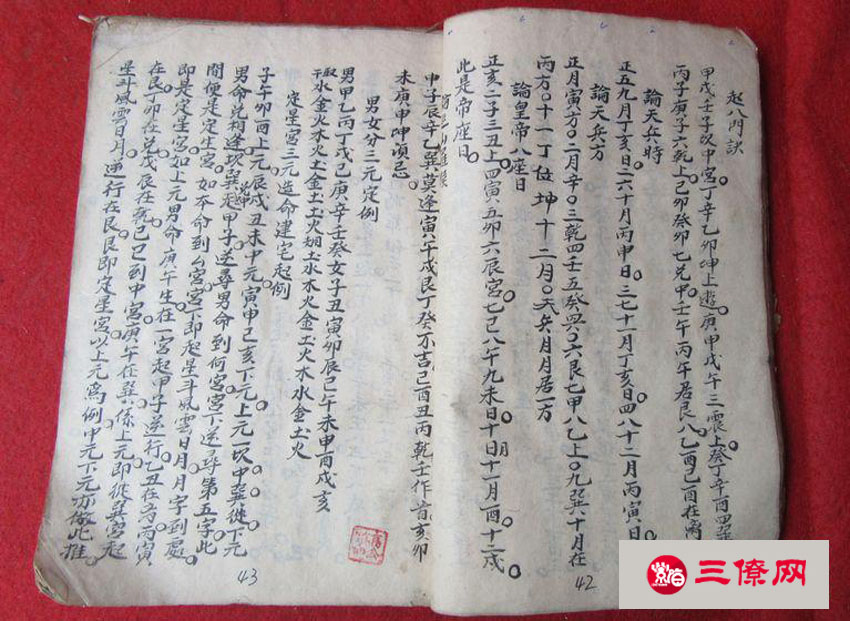 起八門訣
甲戊壬子坎中宮丁辛乙卯坤上遊庚甲戊午三震上癸丁辛酉四巽
丙子庚子六乾上己卯癸卯七兌甲壬午丙午居艮八乙酉己酉在離
論天兵時
正五九月丁亥日二六十月丙申日三七十一月丁亥日四八十二月丙寅日
論天兵方
正月寅方二月辛三乾四壬五癸六艮七甲八乙上九巽十月在
丙方十一丁位坤十二月天兵月月居一方
論皇帝八座日
正亥二子三丑上四寅五卯六辰宮七巳八午九未日十日十一月酉十二戌
此是帝座日
申子辰辛乙巽莫逢寅午戌艮丁癸不吉巳酉丑丙乾壬作首亥卯
未庚申坤須忌
男女分三元定例
男甲乙丙丁戊己庚辛壬癸女子丑寅卯辰巳午未申酉戌亥
水金火木火土金土土火
水木火金土火木水金土火
定星宮三元造命建宅起例
子午卯酉上元辰戌丑未中元寅申巳亥下元上元一坎中巽從下元
男命兌相逢坎巽起甲子逆尋男命到何宮宮下逆尋第五字此
間便是定生宮如本命到宮宮下即起星斗風雲日月月字到處
即是定星宮如上元男命庚午生在一宮起甲子逆行乙丑在离丙寅
在艮丁卯在兌戊辰在乾己巳到中宮庚午在巽係上元即從巽宮起
星斗風雲日月逆行在艮艮即定星宮以上元為例中元下元亦倣此推
42
43
三僚网